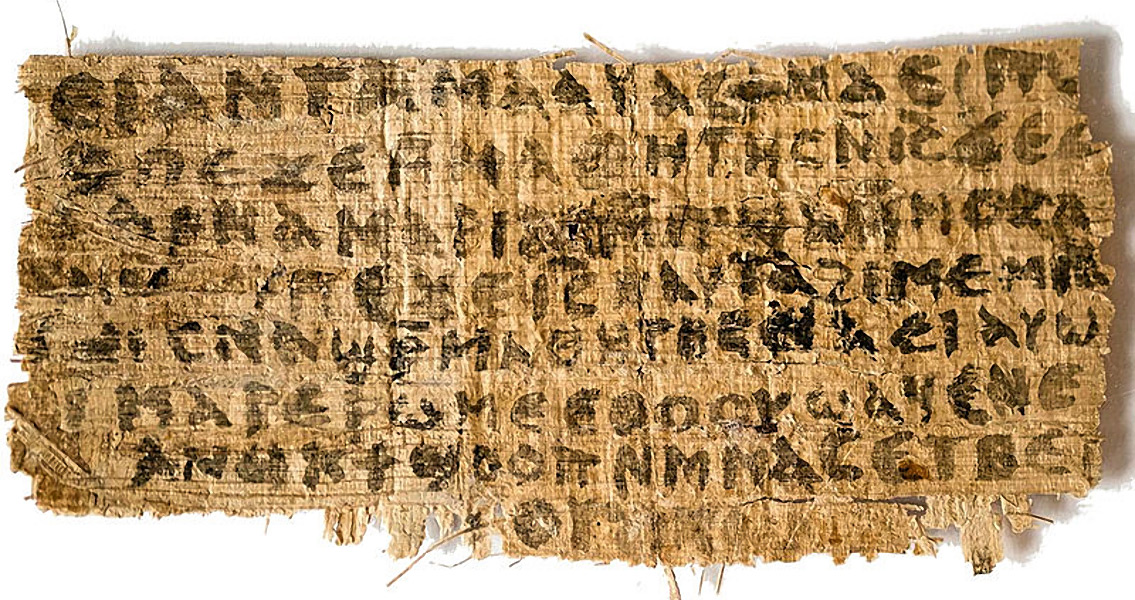 ⲉⲓ ⲁⲛ ⲧⲁⲙⲁⲁⲩ ⲁⲥϯ ⲛⲁⲉⲓ
ⲡⲉϫⲉ ⲙⲙⲁⲑⲏⲧⲏⲥ ⲛⲓ̅ⲥ̅ ϫⲉ ⲥ
ⲁⲣⲛⲁ ⲙⲁⲣⲓⲁⲙ ⲙⲡϣⲁ
ⲡⲉϫⲉ ⲓ̅ⲥ̅ ⲛⲁⲩ ⲧⲁϩⲓⲙⲉ ⲙⲛ
ⲥⲛⲁϣⲣⲙⲁⲑⲏⲧⲏⲥ ⲛⲁⲉⲓ ⲁⲩⲱ
ⲓ ⲙⲁⲣⲉⲣⲱⲙⲉ ⲉⲑⲟⲟⲩ ϣⲁϥⲉ ⲛⲉ
ⲁⲛⲟⲕ ϯϣⲟⲟⲡ ⲛⲙⲙⲁⲥ ⲉⲧⲃⲉ